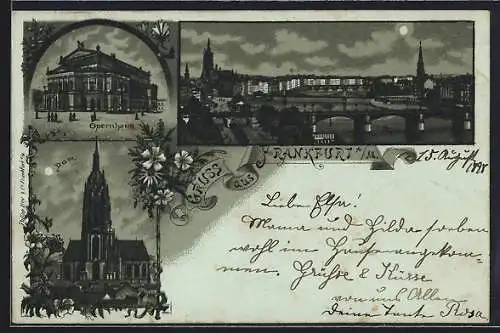 Opernhaus
Dom
GRUSS AUS FRANKFURT A/M.
15. August 1898
Liebe Elsa!
Mama und Hilda soeben
wohl im Hause angekom-
men. Grüße & Küsse
von uns Allen
Deine Tante Rosa